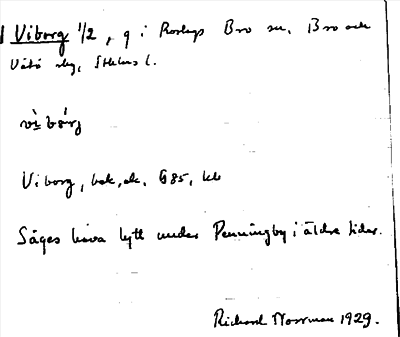 Viborg 1/2, g i Roslags Bro sn, Bro och
Vätö skg, Sthlms l.
vì bórj
Viborg, bek, ek. G 85, kb
Säges hava lytt under Penningby i äldre tider.
Richard Norrman 1929.